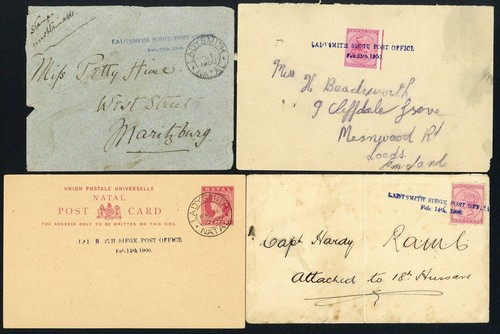 Stamps
unobtainable.
LADYSMITH SIEGE POST OFFICE
LADYSMITH
NATAL
Miss Petty Hime
West Street
Maritzburg
LADYSMITH SIEGE POST OFFICE
Feb. 13th, 1900.
Miss H Beadsworth
9 Cliffdale Grove
Meanwood Rd
Leeds
England
UNION POSTALE UNIVERSELLE
NATAL
POST CARD
THE ADDRESS ONLY TO BE WRITTEN ON THIS SIDE.
NATAL
LADYSMITH
NATAL
LAD SMITH SIEGE POST OFFICE
Feb. 14th, 1900.
LADYSMITH SIEGE POST OFFI
Feb. 14th, 1900.
Capt Hardy R.A.M.C
Attached to 18th Hussars